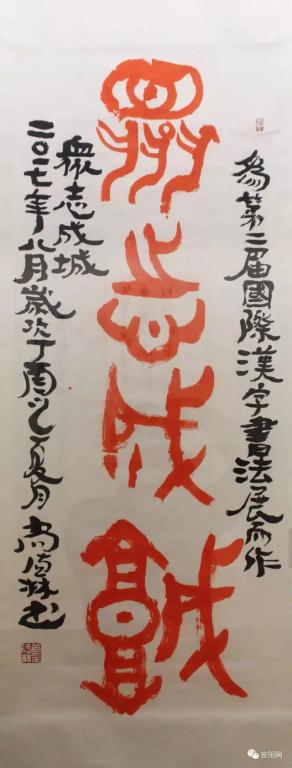 為第二届國際漢字書法展而作
衆志成城
衆志成城
二〇一七年八月歲次丁酉之夏月 尚林书
安阳网